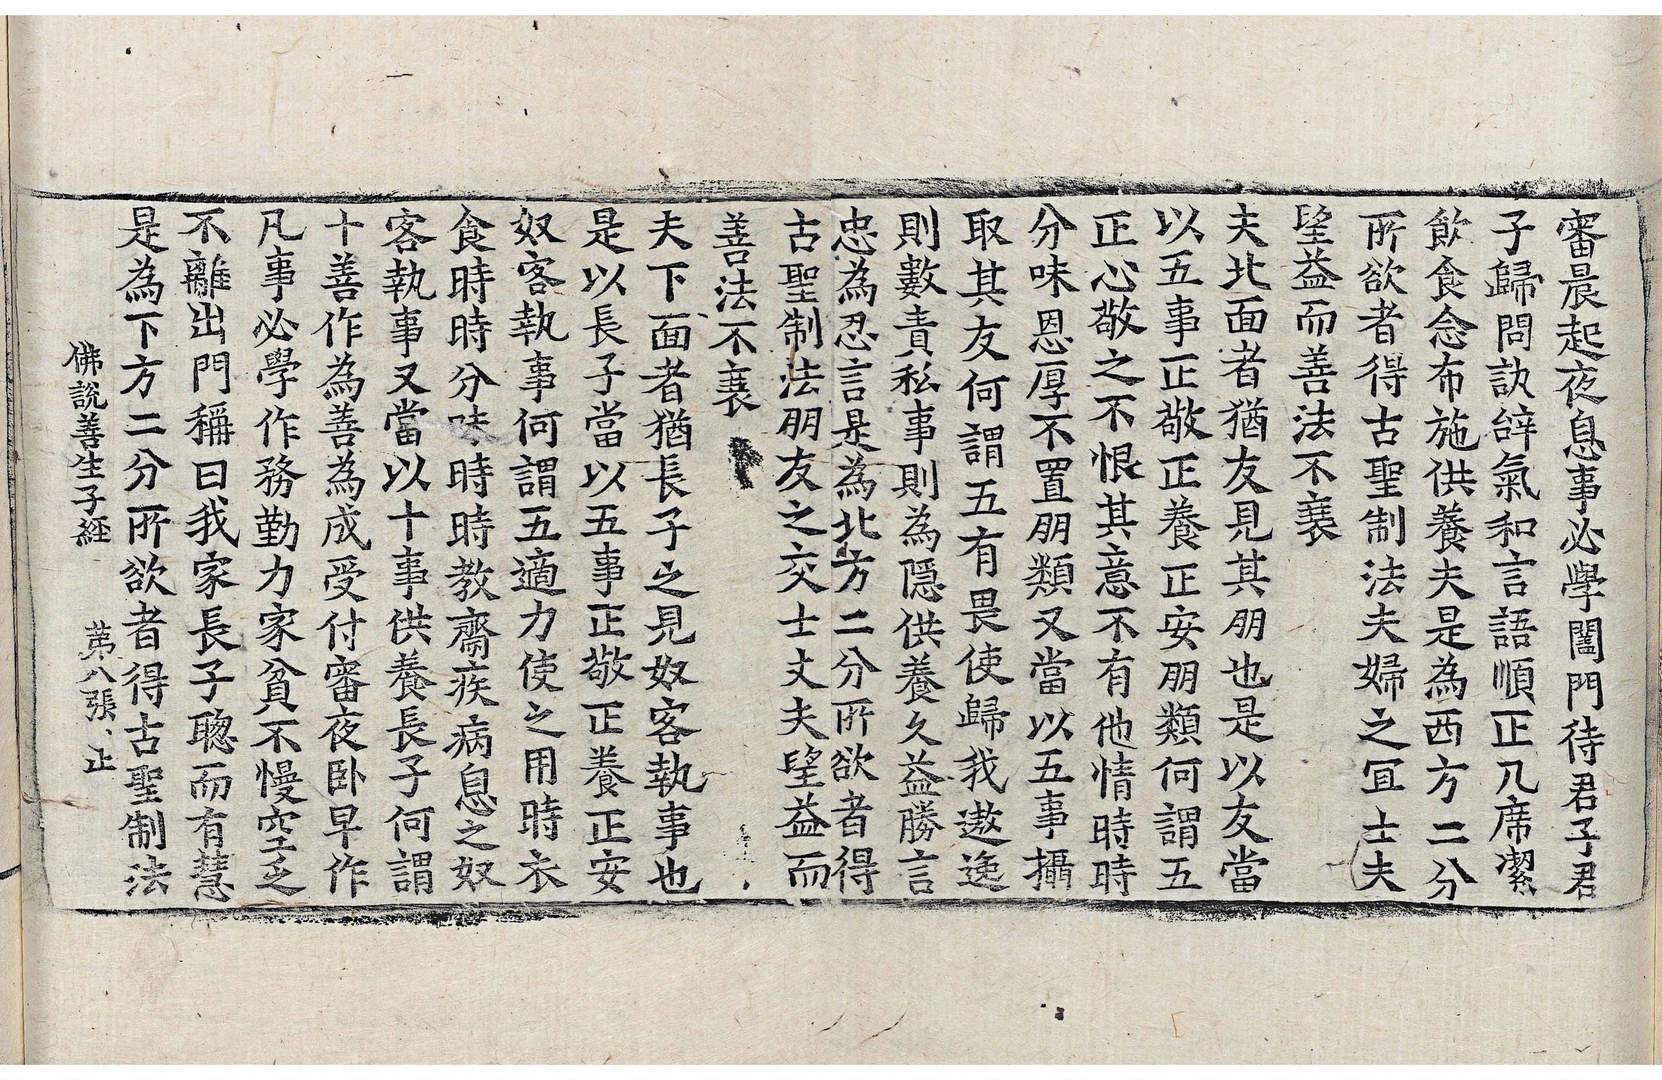 審晨起夜息事必學闔門待君子君
子歸問訊辝氣和言語順正几席潔
飲食念布施供養夫是為西方二分
所欲者得古聖制法夫婦之宜士夫
望益而善法不衰
夫北面者猶友見其朋也是以友當
以五事正敬正養正安朋類何謂五
正心敬之不恨其意不有他情時時
分味恩厚不置朋類又當以五事攝
取其友何謂五有畏使歸我遨逸
則數責私事則為隱供養久益勝言
忠為忍言是為北方二分所欲者得
古聖制法朋友之交士丈夫望益而
善法不衰
夫下面者猶長子之見奴客執事也
是以長子當以五事正敬正養正安
奴客執事何謂五適力使之用時衣
食時時分味時時教齋疾病息之奴
客執事又當以十事供養長子何謂
十善作為善為成受付審夜卧早作
凡事必學作務勤力家貧不慢空乏
不離出門稱曰我家長子聰而有慧
是為下方二分所欲者得古聖制法
佛說善生子經 苐八張 止